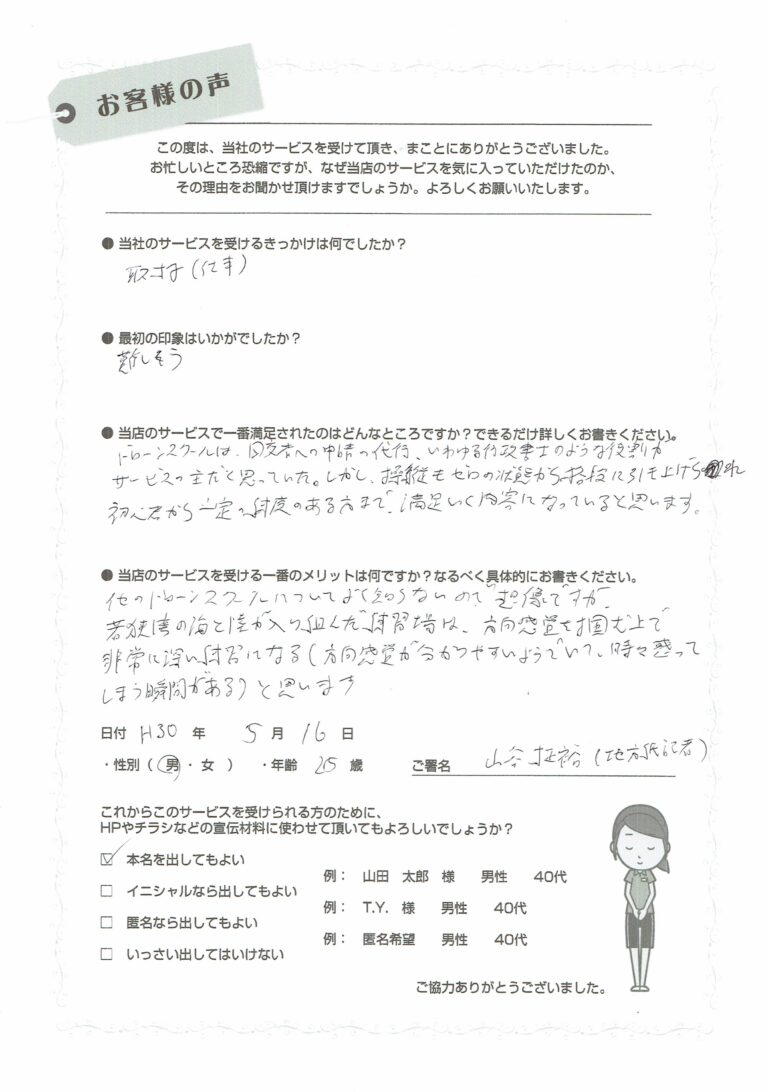 お客様の声
この度は、当社のサービスを受けて頂き、まことにありがとうございました。
お忙しいところ恐縮ですが、なぜ当店のサービスを気に入っていただけたのか、
その理由をお聞かせ頂けますでしょうか。よろしくお願いいたします。
● 当社のサービスを受けるきっかけは何でしたか？
取材（仕事）
● 最初の印象はいかがでしたか？
難しそう
● 当店のサービスで一番満足されたのはどんなところですか？できるだけ詳しくお書きください。
ドローンスクールは、国交省への申請の代行、いわゆる行政書士のような役割が
サービスの主だと思っていた。しかし、操縦もゼロの状態から格段に引き上げられ
初心者から一定の練度のある方まで、満足いく内容になっていると思います。
● 当店のサービスを受ける一番のメリットは何ですか？なるべく具体的にお書きください。
他のドローンスクールについてよく知らないので想像ですが、
若狭湾の海と陸が入り組んだ練習場は、方向感覚を固む上で
非常に深い練習になる（方向感覚が分かりやすいようでいて、時々惑って
しまう瞬間がある）と思います
日付 H30 年 5 月 16 日
・性別（ 男 ・ 女 ） ・年齢 25 歳 ご署名 山谷 柾裕（地方紙記者）
これからこのサービスを受けられる方のために、
HPやチラシなどの宣伝材料に使わせて頂いてもよろしいでしょうか？
☑ 本名を出してもよい 例： 山田 太郎 様 男性 40代
□ イニシャルなら出してもよい 例： T.Y. 様 男性 40代
□ 匿名なら出してもよい 例： 匿名希望 男性 40代
□ いっさい出してはいけない
ご協力ありがとうございました。